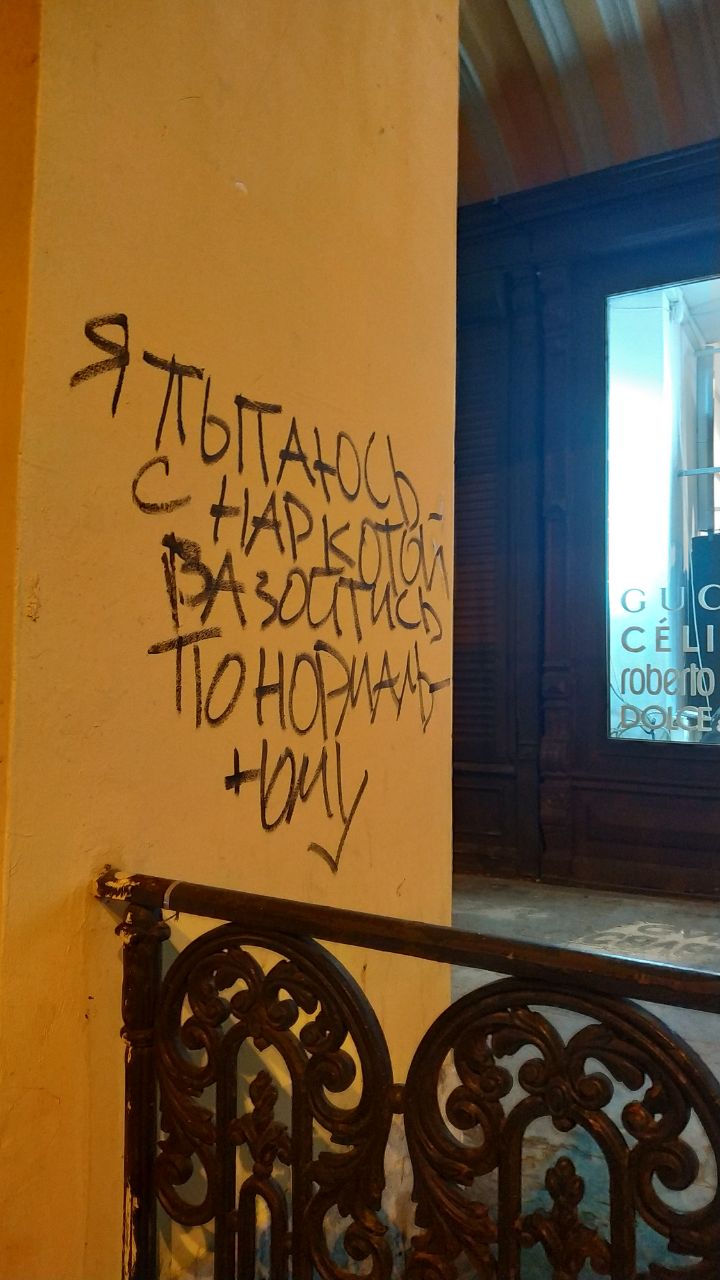 Я ПЫПАЮСЬ
С НАРКОТОЙ
ЗАЗОЙТИСЬ
ПО НОРМАЛЬ-
НОМУ
GUC
CÉLI
roberto
DOLCE &